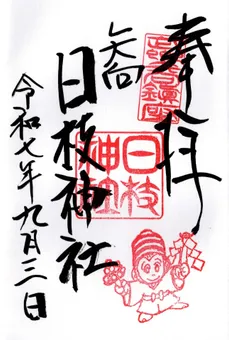 奉拝
矢向
日枝神社
日枝神社
令和七年九月三日